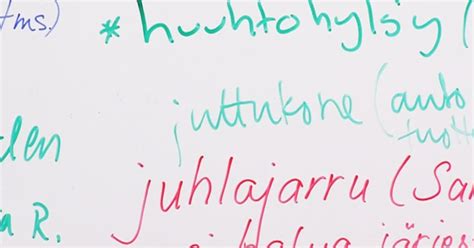 tms.)
* huuhtohylsy (
juttukone (auto
tuott
den
juhlajarru (Sa
a R.
halua järjes